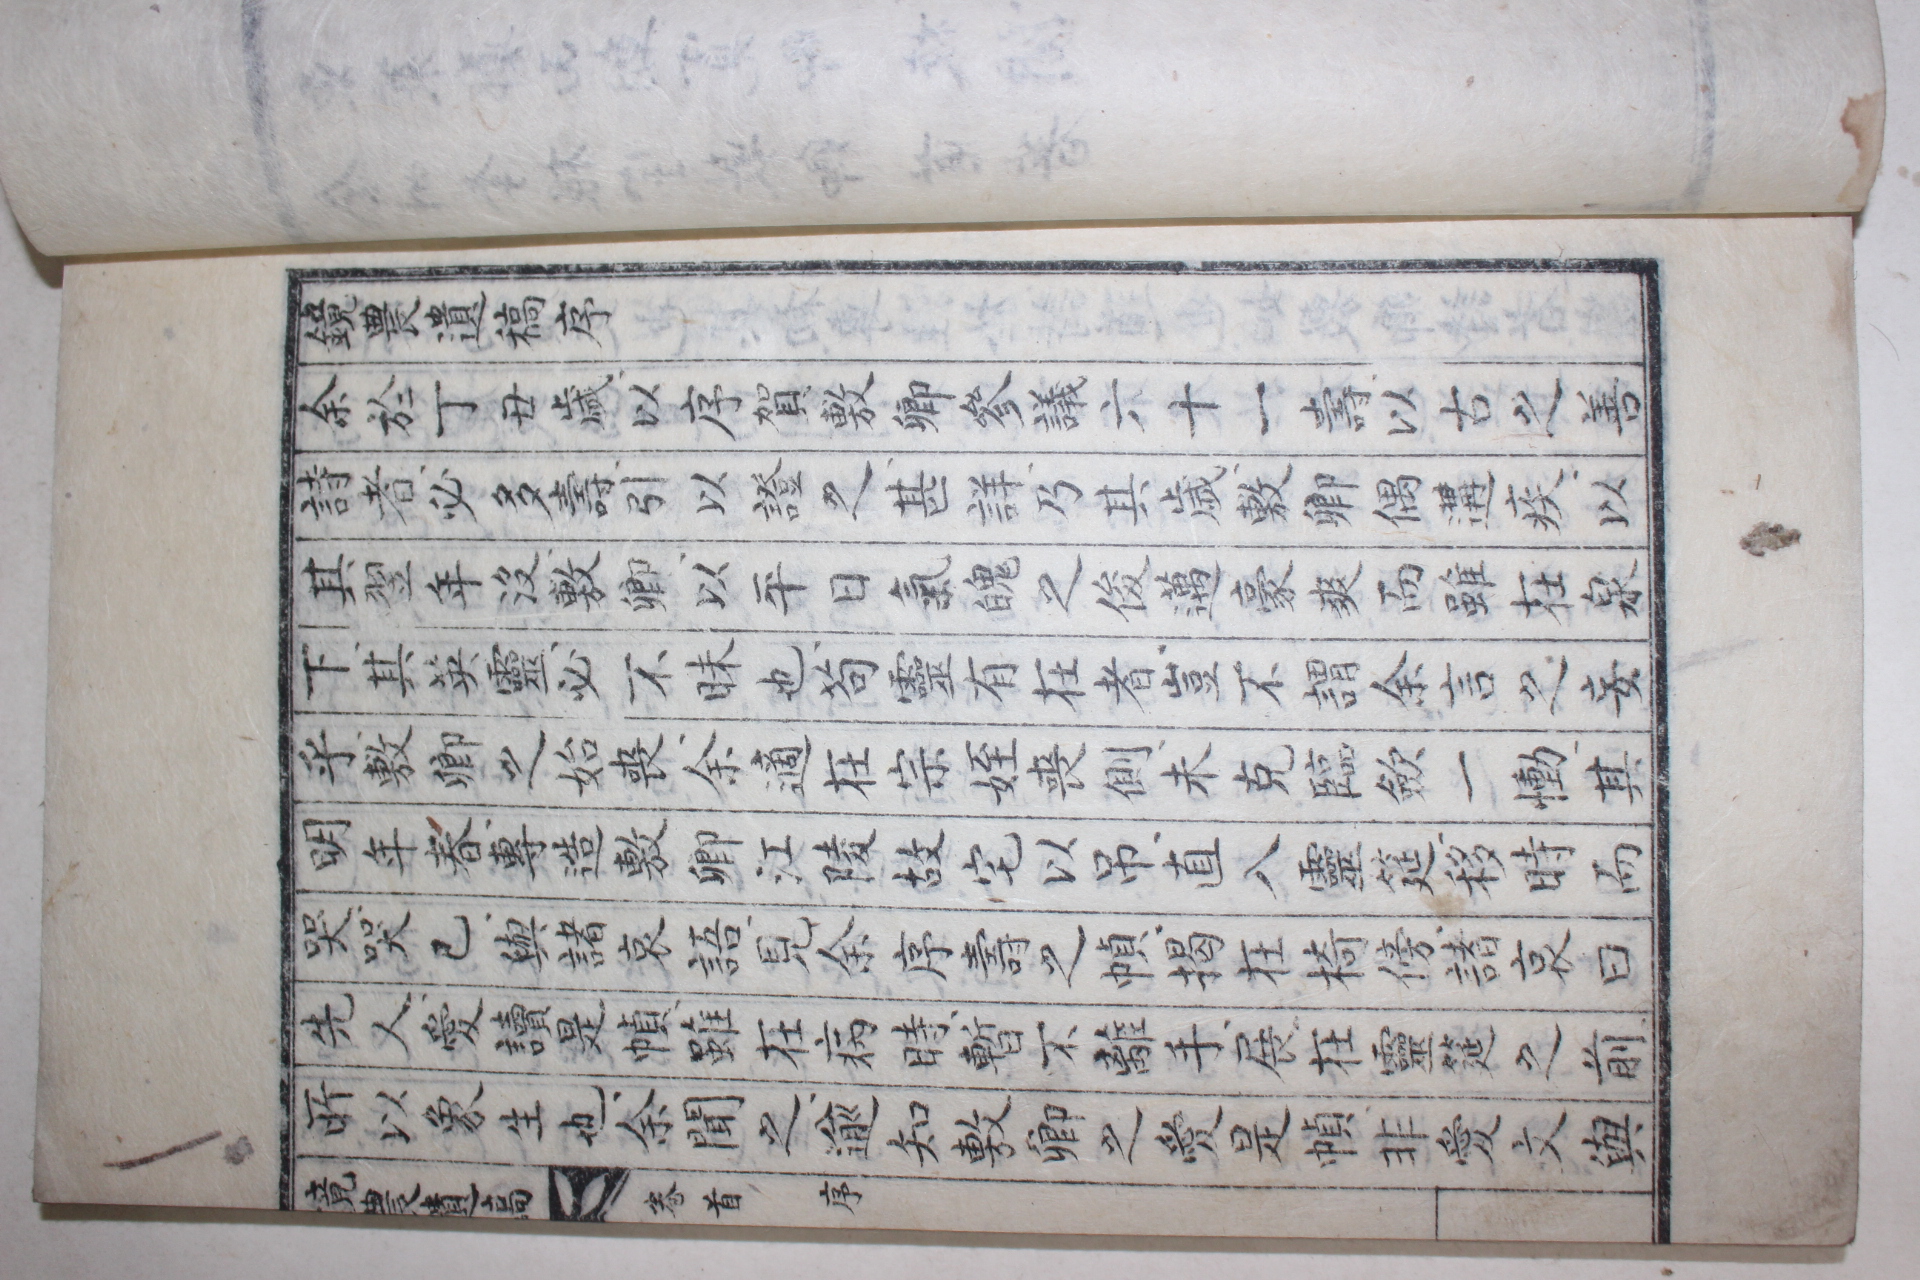 鏡農遺稿序
余於丁丑歲以序賀敷卿參議六十一壽以古之善
詩者必多壽引以證之甚詳乃其歲敷卿偶遘疾以
其翌年沒敷卿以平日氣魄之俊邁豪爽而雖在泉
下其英靈必不昧也苟靈有在者豈不謂余言之妄
乎敷卿之始喪余適在宗姪喪側未克臨斂一慟其
明年春專造敷卿江陵故宅以吊直入靈筵移時而
哭哭已與諸哀語見余序壽之幀揭在椅傍諸哀曰
先人愛讀是幀雖在病時暫不離手展在靈筵之前
所以象生也余聞之逾知敷卿之愛是幀非愛文與
鏡農遺稿 卷首 序